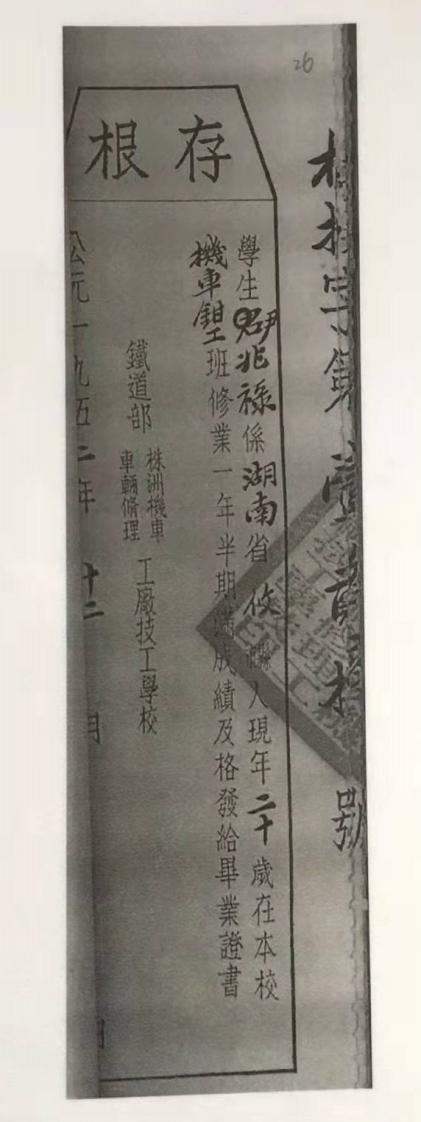 26
存根
字第壹 號
學生 兆祿係湖南省攸縣人現年二十歲在本校
機車鉗工班修業一年半期滿成績及格發給畢業證書
鐵道部 株洲機車車輛修理 工廠技工學校
公元一九五二年 十二 月 日